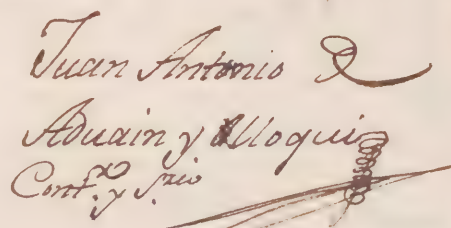 Juan Antonio de
Aduain y Alloqui
Cont.ro y S.rio